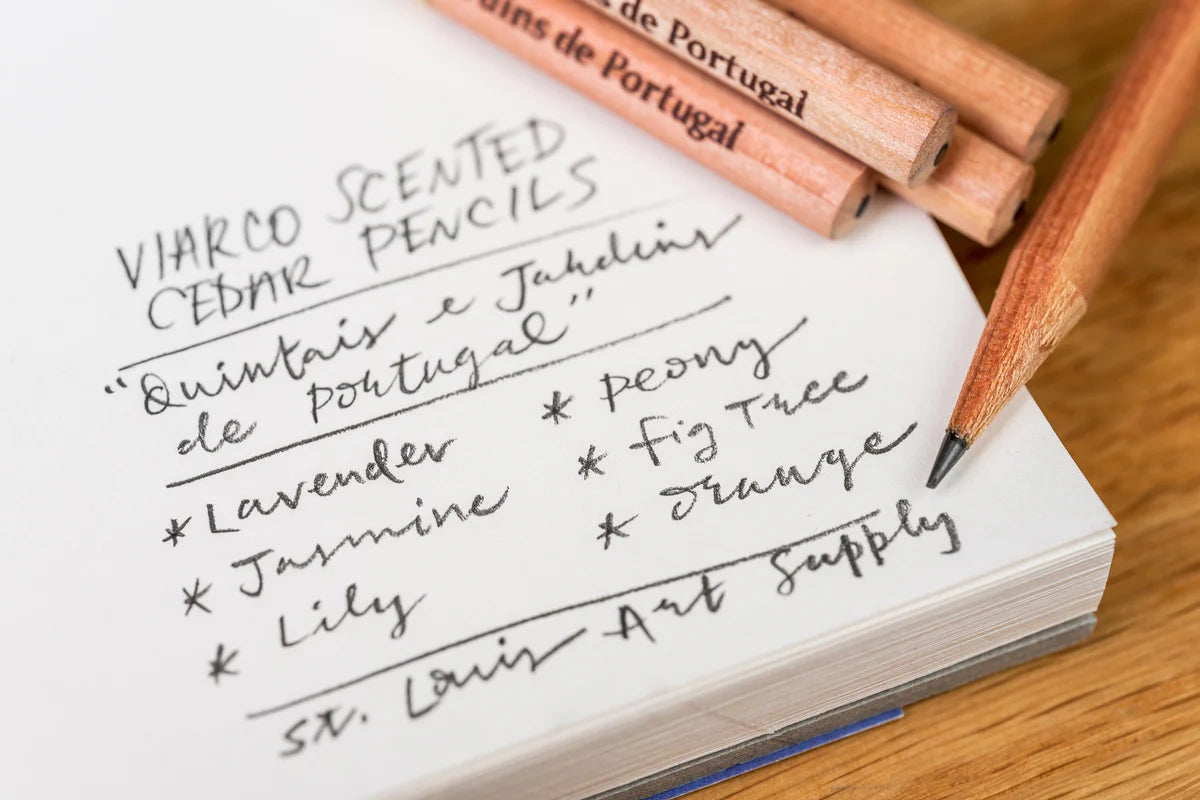 dins de Portugal
s de Portugal
VIARCO SCENTED
CEDAR PENCILS
"Quintais e Jardins
de portugal"
* Lavender
* Jasmine
* Lily
* peony
* fig Tree
* orange
St. Louis Art Supply